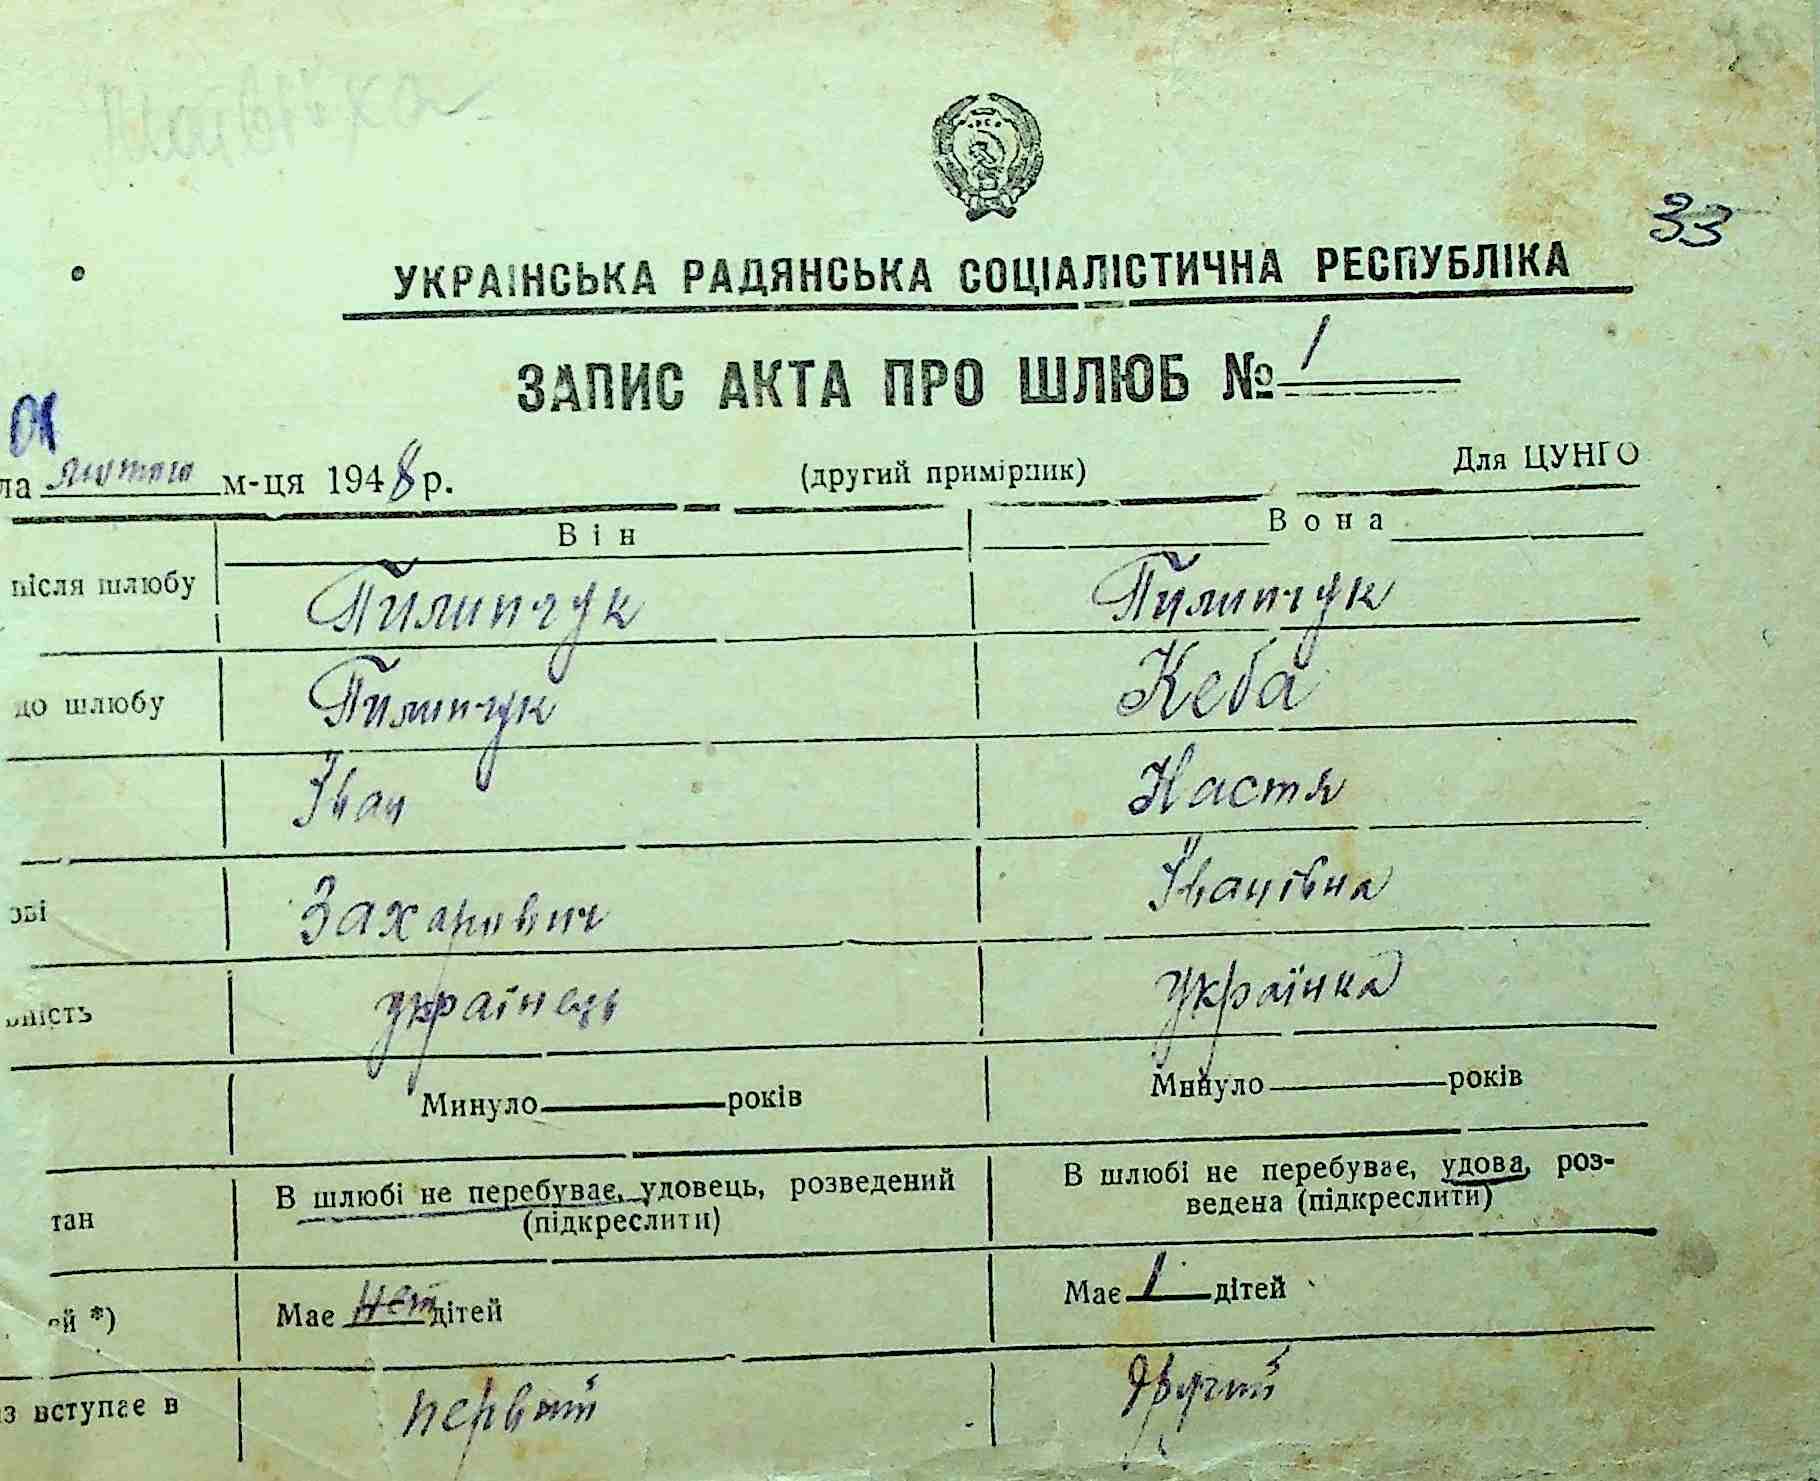 33
УКРАІНСЬКА РАДЯНСЬКА СОЦІАЛІСТИЧНА РЕСПУБЛІКА
ЗАПИС АКТА ПРО ШЛЮБ № 1
ла лютого м-ця 1948 р. (другий примірник) Для ЦУНГО
Він Вона
після шлюбу Пилипчук Пилипчук
до шлюбу Пилипчук Кеба
Іван Настя
зві Захарович Іванівна
вність українець українка
Минуло років Минуло років
тан В шлюбі не перебуває, удовець, розведений В шлюбі не перебуває, удова, роз-
(підкреслити) ведена (підкреслити)
ей *) Має нет дітей Має 1 дітей
аз вступає в первий другий